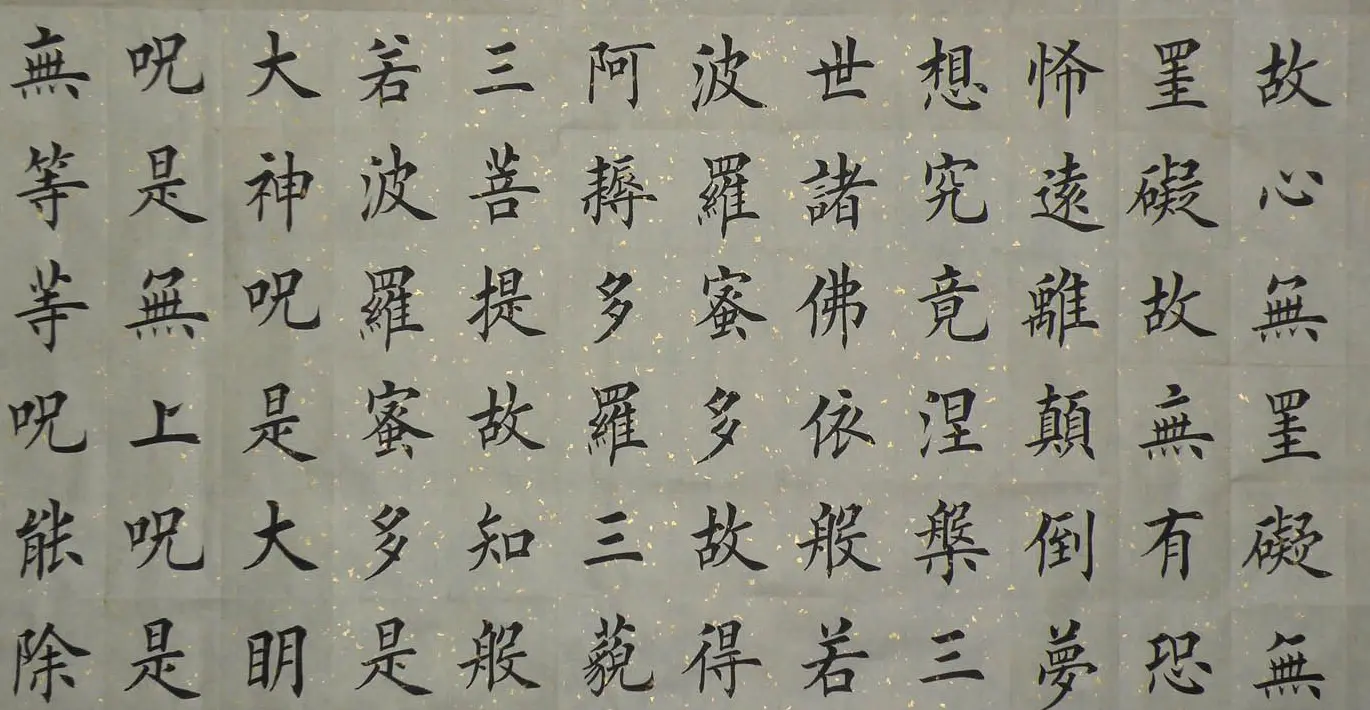 故心無罣礙無
罣礙故無有恐
怖遠離顛倒夢
想究竟涅槃三
世諸佛依般若
波羅蜜多故得
阿耨多羅三藐
三菩提故知般
若波羅蜜多是
大神呪是大明
呪是無上呪是
無等等呪能除